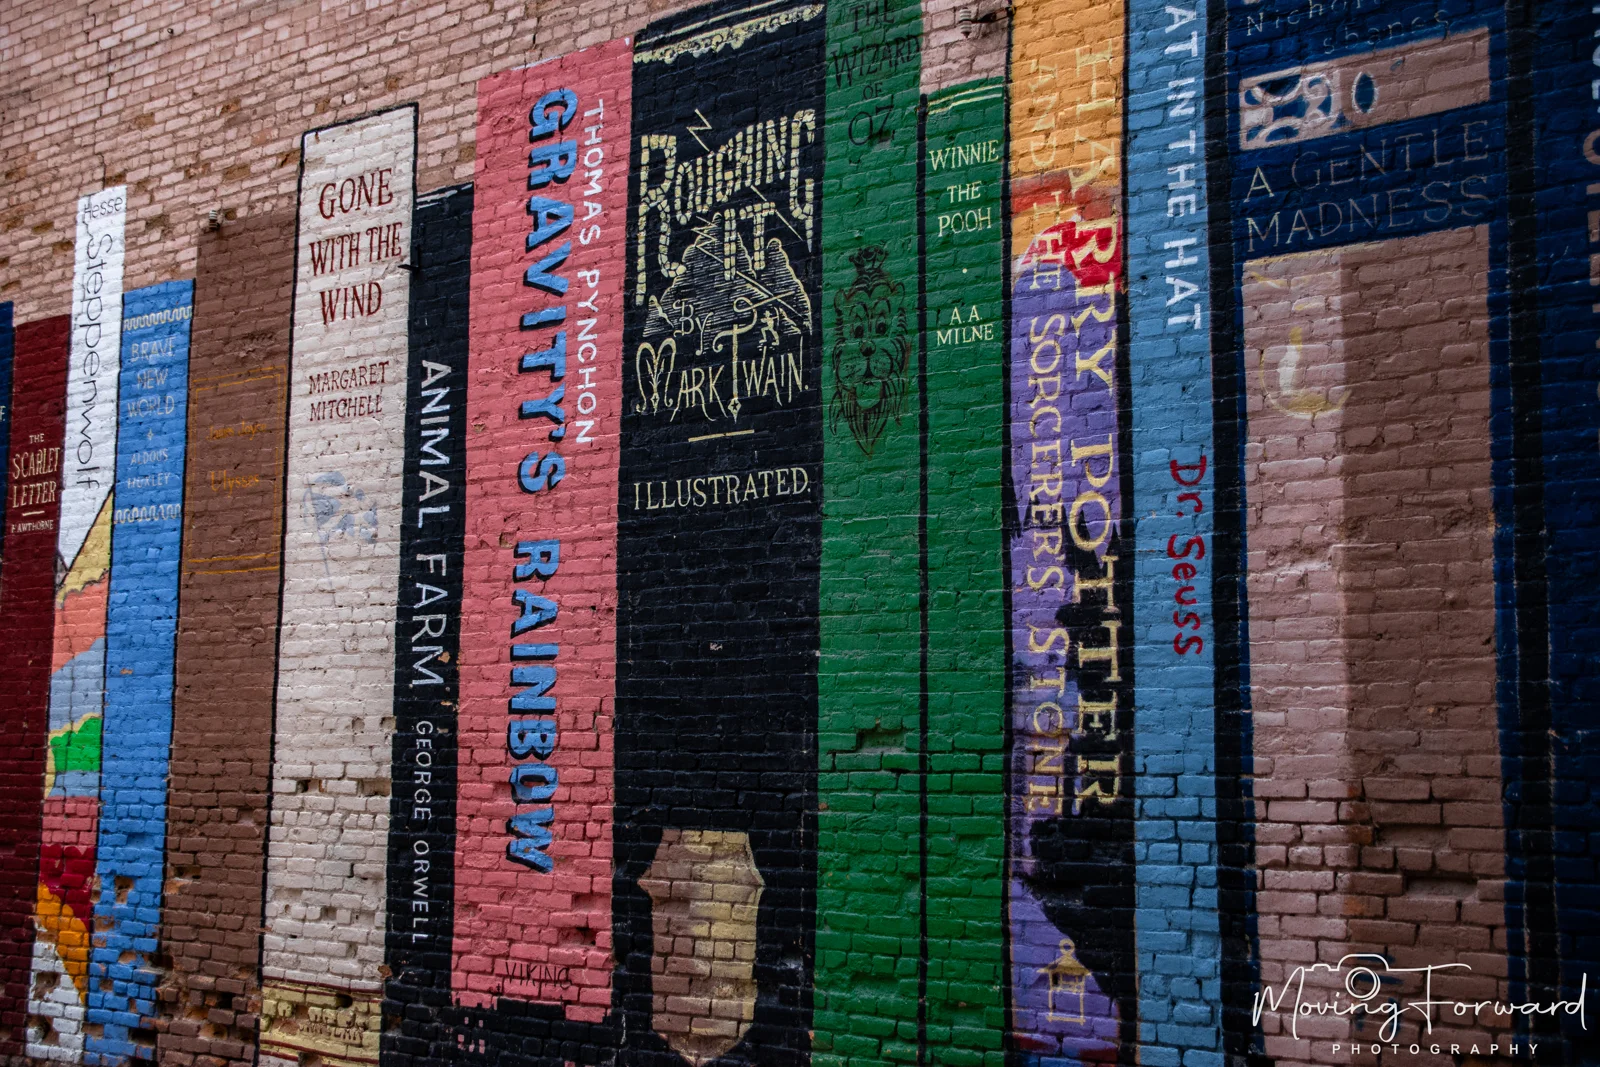 THE
SCARLET
LETTER
Hesse
Steppenwolf
BRAVE
NEW
WORLD
ALDOUS
HUXLEY
Ulysses
GONE
WITH THE
WIND
MARGARET
MITCHELL
ANIMAL FARM GEORGE ORWELL
THOMAS PYNCHON
GRAVITY'S RAINBOW
VIKING
ROUGHING
IT
By
MARK TWAIN.
ILLUSTRATED.
THE
WIZARD
OF
OZ
WINNIE
THE
POOH
A.A.
MILNE
HARRY POTTER
AND THE SORCERERS STONE
AT IN THE HAT
Dr. Seuss
A GENTLE
MADNESS
Moving Forward
PHOTOGRAPHY